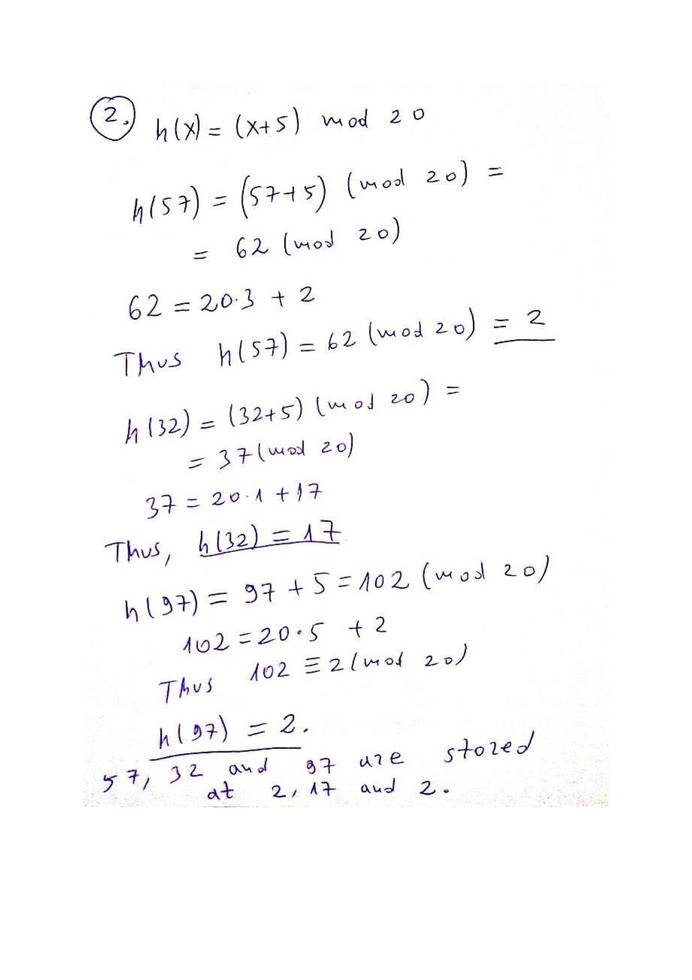 2. h(x) = (x+5) mod 20
h(57) = (57+5) (mod 20) =
= 62 (mod 20)
62 = 20·3 + 2
Thus h(57) = 62 (mod 20) = 2
h(32) = (32+5) (mod 20) =
= 37 (mod 20)
37 = 20·1 + 17
Thus, h(32) = 17
h(97) = 97 + 5 = 102 (mod 20)
102 = 20·5 + 2
Thus 102 ≡ 2 (mod 20)
h(97) = 2.
57, 32 and 97 are stored
at 2, 17 and 2.